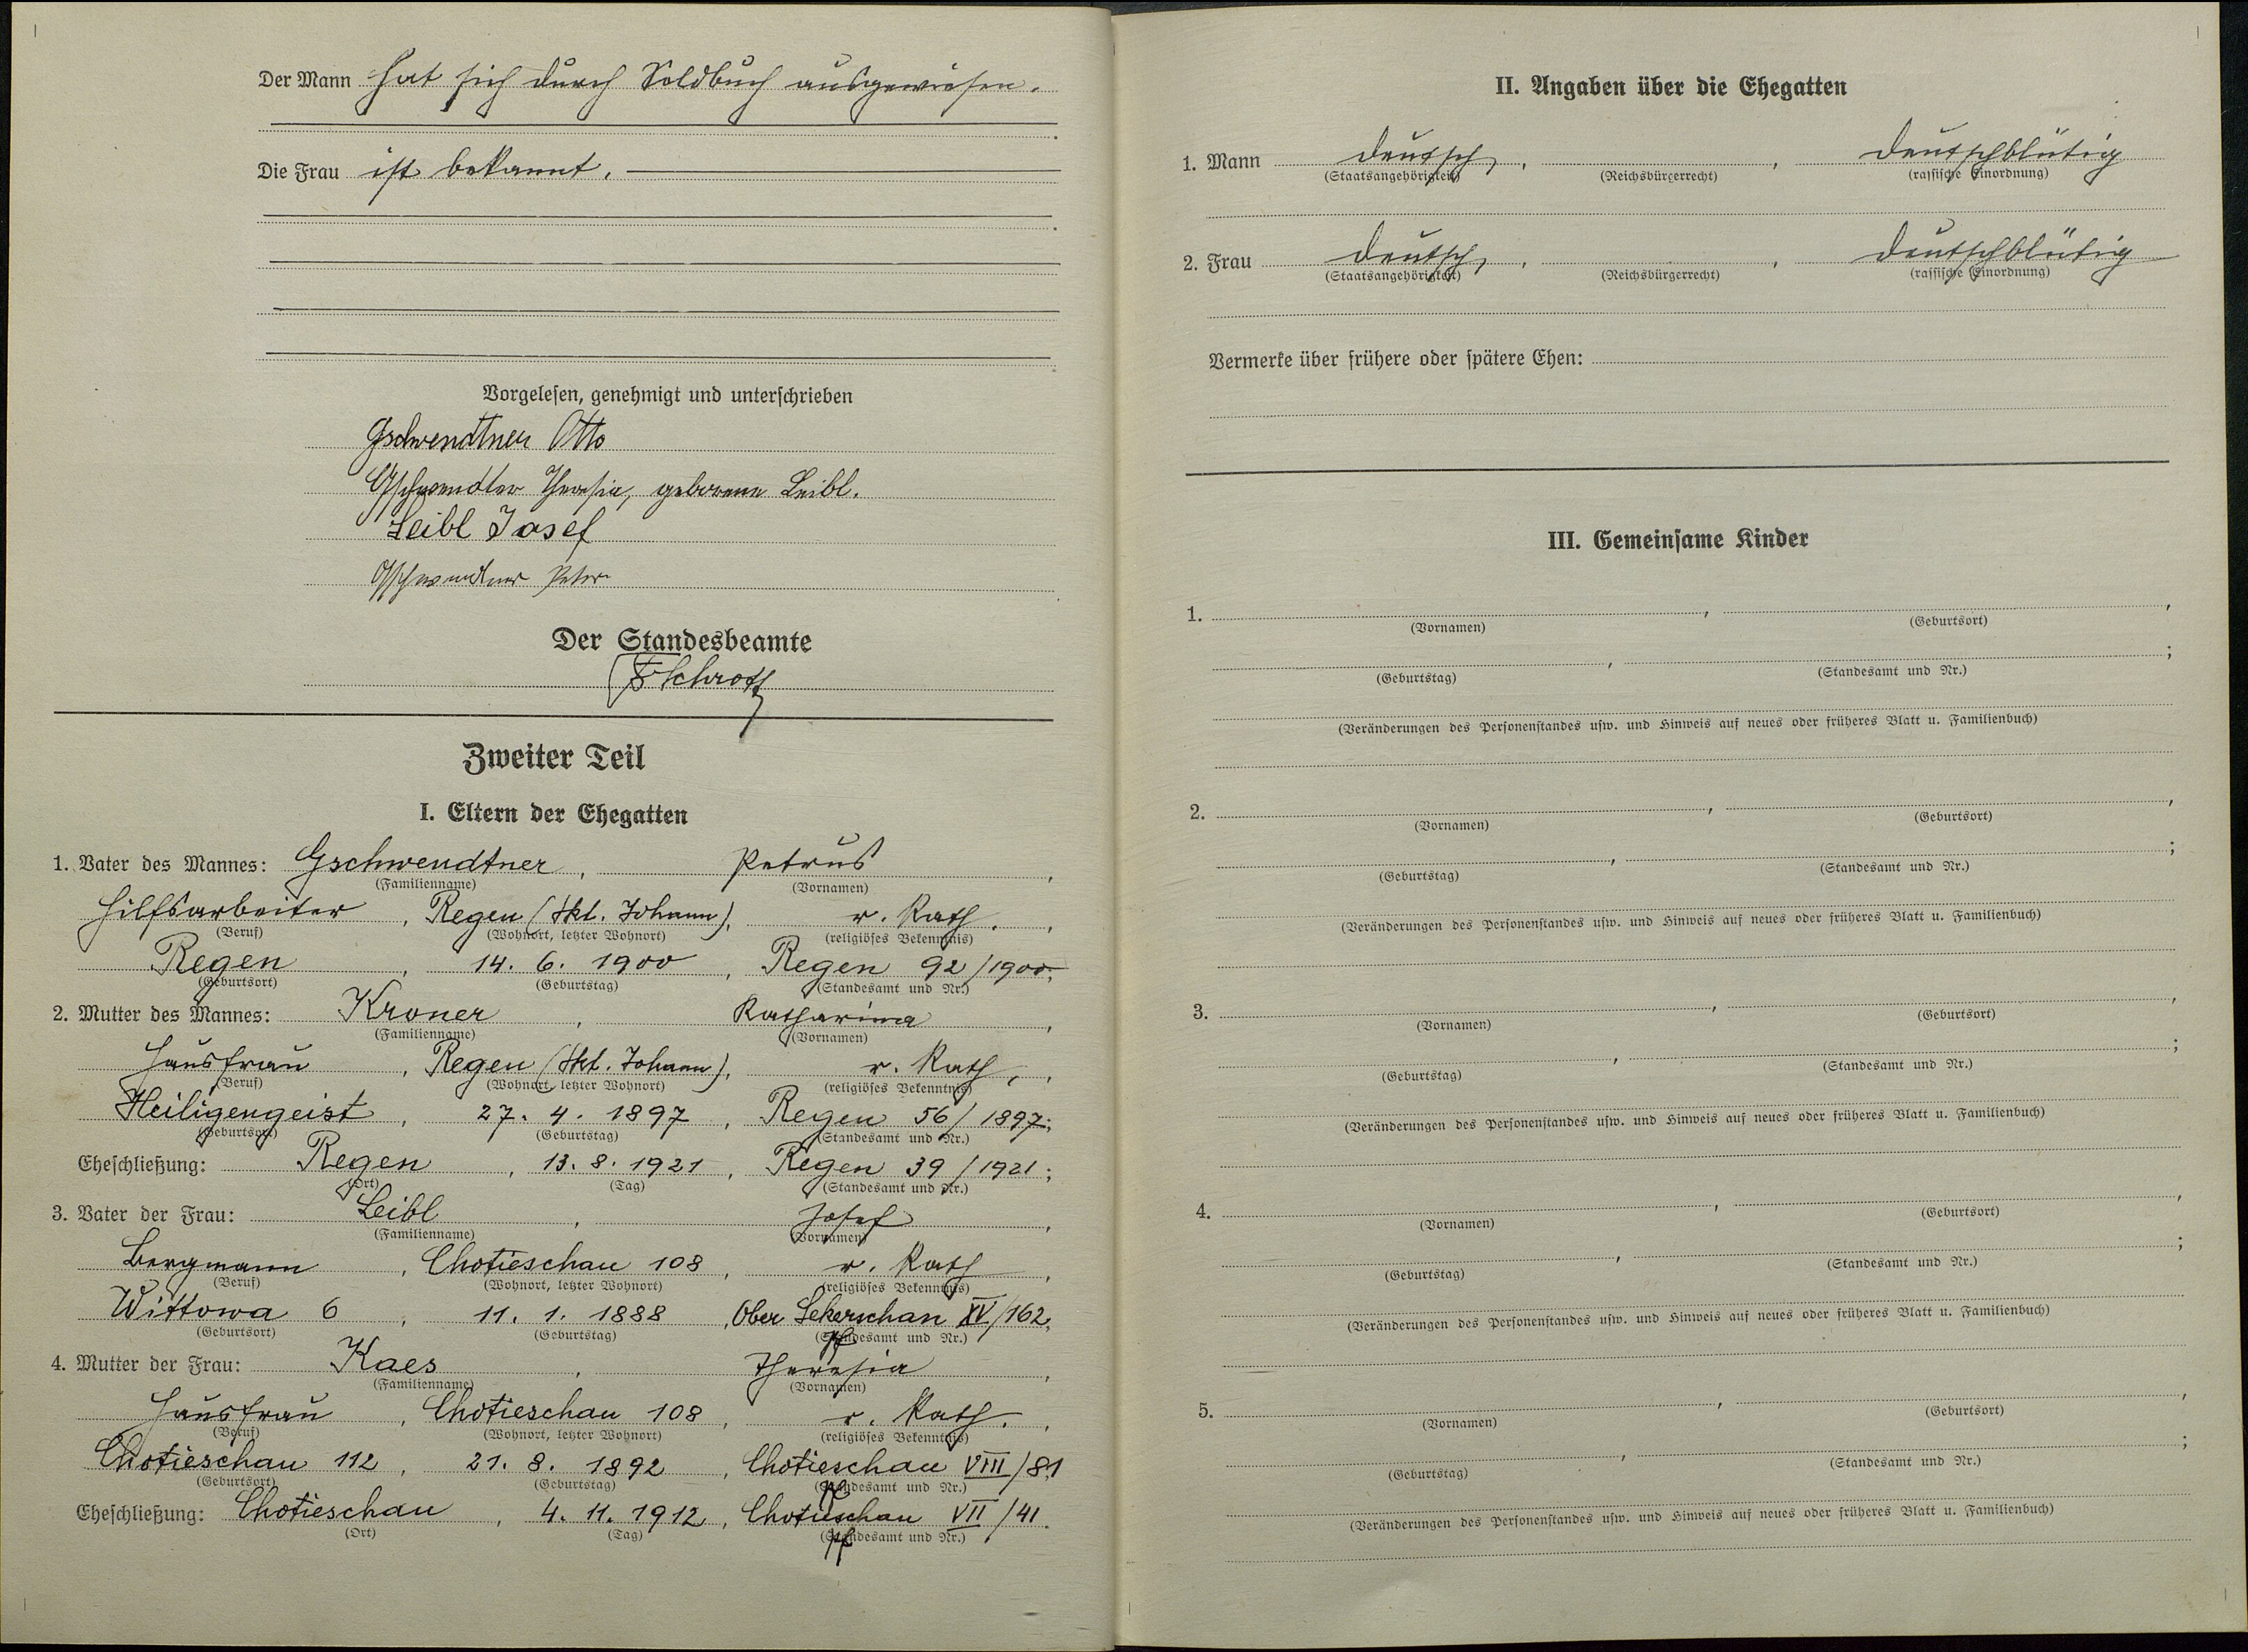 Der Mann hat sich durch Soldbuch ausgewiesen.
Die Frau ist bekannt.
Vorgelesen, genehmigt und unterschrieben
Gschwendtner Otto
Gschwendter Theresia, geborene Leibl.
Leibl Josef
Gschwendtner Peter
Der Standesbeamte
Schrott
Zweiter Teil
I. Eltern der Ehegatten
1. Vater des Mannes: Gschwendtner, Petrus,
(Familienname) (Vornamen)
Hilfsarbeiter, Regen (Skt. Johann), r. Kath.,
(Beruf) (Wohnort, letzter Wohnort) (religiöses Bekenntnis)
Regen, 14. 6. 1900, Regen 92/1900;
(Geburtsort) (Geburtstag) (Standesamt und Nr.)
2. Mutter des Mannes: Kroner, Katharina,
(Familienname) (Vornamen)
Hausfrau, Regen (Skt. Johann), r. Kath.,
(Beruf) (Wohnort, letzter Wohnort) (religiöses Bekenntnis)
Heiligengeist, 27. 4. 1897, Regen 56/1897;
(Geburtsort) (Geburtstag) (Standesamt und Nr.)
Eheschließung: Regen, 13. 8. 1921, Regen 39/1921;
(Ort) (Tag) (Standesamt und Nr.)
3. Vater der Frau: Leibl, Josef,
(Familienname) (Vornamen)
Bergmann, Chotieschau 108, r. Kath,
(Beruf) (Wohnort, letzter Wohnort) (religiöses Bekenntnis)
Wittowa 6, 11. 1. 1888, Ober Sekerschan XV/162,
(Geburtsort) (Geburtstag) (Standesamt und Nr.)
4. Mutter der Frau: Kaes, Theresia,
(Familienname) (Vornamen)
Hausfrau, Chotieschau 108, r. Kath.,
(Beruf) (Wohnort, letzter Wohnort) (religiöses Bekenntnis)
Chotieschau 112, 21. 8. 1892, Chotieschau VIII/81
(Geburtsort) (Geburtstag) (Standesamt und Nr.)
Eheschließung: Chotieschau, 4. 11. 1912, Chotieschau VII/41.
(Ort) (Tag) (Standesamt und Nr.)
II. Angaben über die Ehegatten
1. Mann deutsch, , deutschblütig
(Staatsangehörigkeit) (Reichsbürgerrecht) (rassische Einordnung)
2. Frau deutsch, , deutschblütig
(Staatsangehörigkeit) (Reichsbürgerrecht) (rassische Einordnung)
Vermerke über frühere oder spätere Ehen:
III. Gemeinsame Kinder
1. , ,
(Vornamen) (Geburtsort)
, ;
(Geburtstag) (Standesamt und Nr.)
(Veränderungen des Personenstandes usw. und Hinweis auf neues oder früheres Blatt u. Familienbuch)
2. , ,
(Vornamen) (Geburtsort)
, ;
(Geburtstag) (Standesamt und Nr.)
(Veränderungen des Personenstandes usw. und Hinweis auf neues oder früheres Blatt u. Familienbuch)
3. , ,
(Vornamen) (Geburtsort)
, ;
(Geburtstag) (Standesamt und Nr.)
(Veränderungen des Personenstandes usw. und Hinweis auf neues oder früheres Blatt u. Familienbuch)
4. , ,
(Vornamen) (Geburtsort)
, ;
(Geburtstag) (Standesamt und Nr.)
(Veränderungen des Personenstandes usw. und Hinweis auf neues oder früheres Blatt u. Familienbuch)
5. , ,
(Vornamen) (Geburtsort)
, ;
(Geburtstag) (Standesamt und Nr.)
(Veränderungen des Personenstandes usw. und Hinweis auf neues oder früheres Blatt u. Familienbuch)